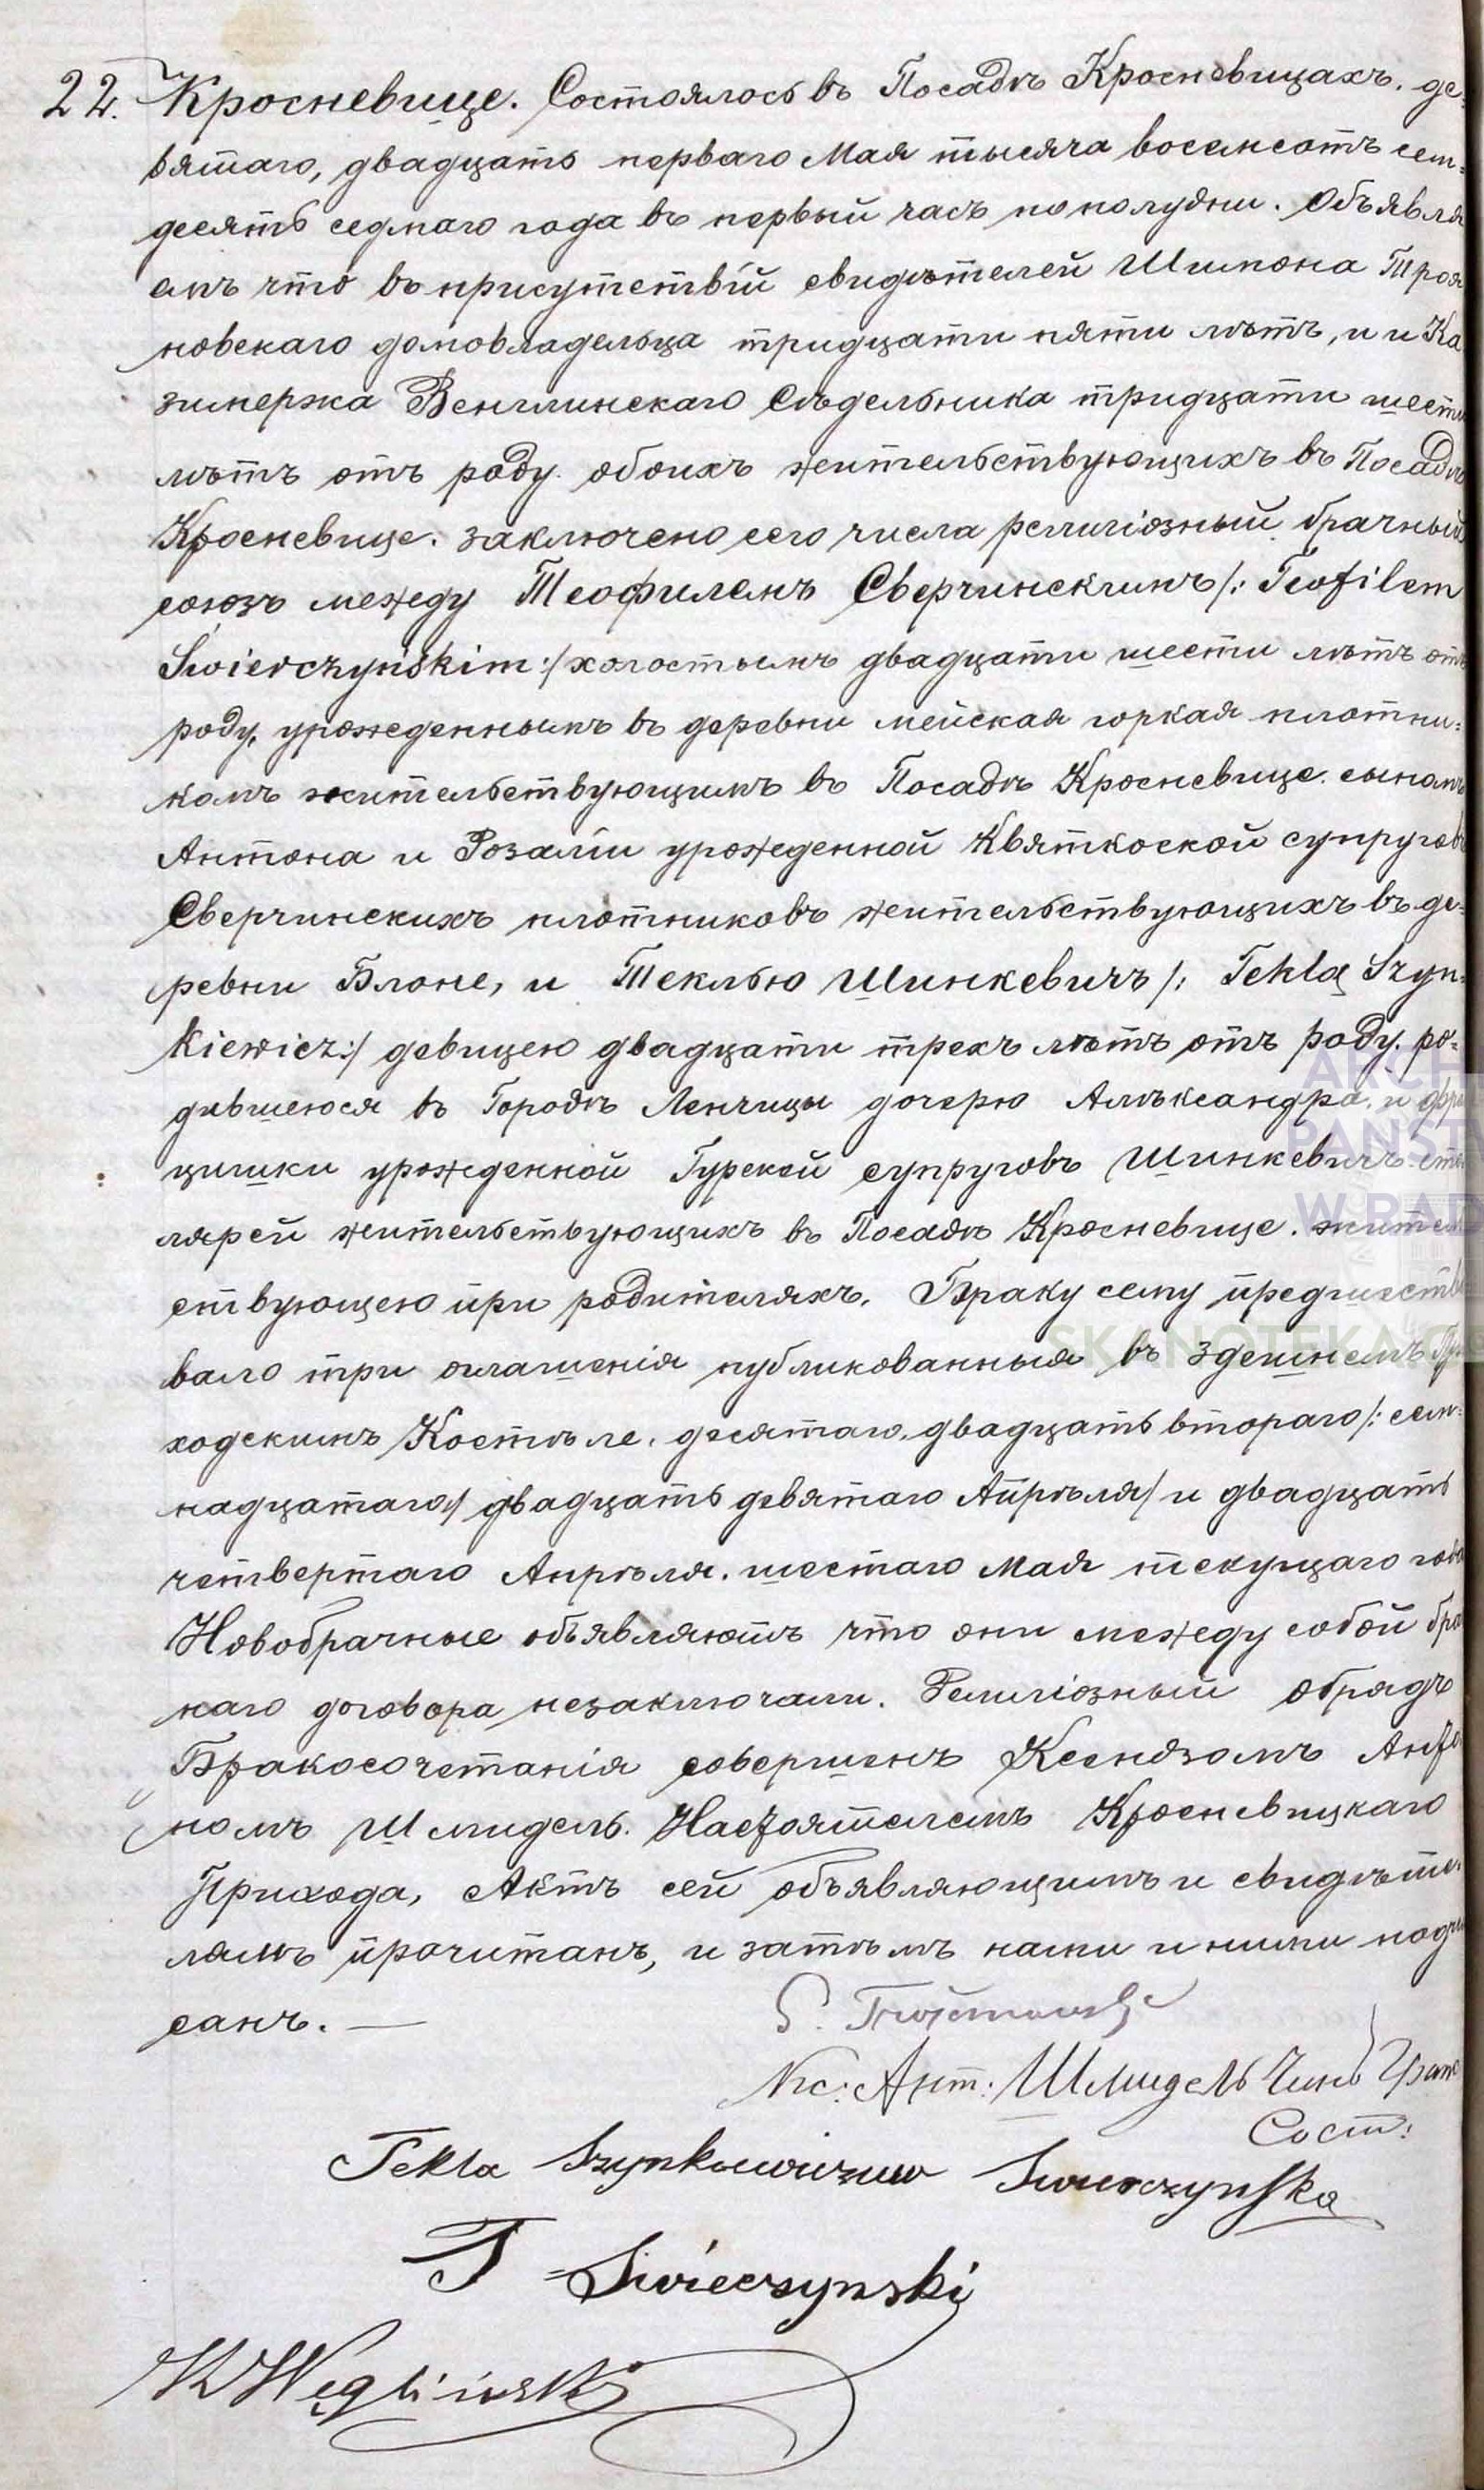 22. Кросневице. Состоялось въ Посадѣ Кросневицахъ. де=
вятаго, двадцать перваго Мая тысяча восемсотъ сем=
десять седмаго года въ первый часъ по полудни. Объявля
емъ что въ присутствій свидѣтелей Шимона Троя
новскаго домовладельца тридцати пяти лѣтъ, и и Ка
зимержа Венглинскаго Сѣдельника тридцати шести
лѣтъ отъ роду. обоихъ жительствующихъ въ Посадѣ
Кросневице. заключено сего числа религіозный брачный
союзъ между Теофилемъ Сверчинскимъ /: Teofilem
Świerczyńskim :/ холостымъ двадцати шести лѣтъ отъ
роду, урожденнымъ въ деревни мейская горкая плотни=
комъ жительствующимъ въ Посадѣ Кросневице. сыномъ
Антона и Розаліи урожденной Квяткоской супруговъ
Сверчинскихъ плотниковъ жительствующихъ въ де=
ревни Блоне, и Теклью Шинкевичъ /: Teklą Szyn=
kiewicz :/ девицею двадцати трехъ лѣтъ отъ роду. ро=
дившеюся въ Городѣ Ленчицы дочерю Алѣксандра. и Фран
цишки урожденной Гурской супруговъ Шинкевичъ сто
лярей жительствующихъ въ Посадѣ Кросневице. жител
ствующею при родителяхъ. Браку сему предшество
вало три оглашенія публикованныя въ здешнемъ При
ходскимъ Костѣле. десятаго. двадцать втораго /: сем=
надцатаго / двадцать девятаго Апрѣля / и двадцать
четвертаго Апрѣля. шестаго Мая текущаго года
Новобрачные объявляютъ что они между собой бра
каго договора незаключали. Религіозный обрядъ
Бракосочетанія совершенъ Ксендзомъ Анто
номъ Шмидель. Настоятелемъ Кросневицкаго
Прихода, Актъ сей объявляющимъ и свидѣте
лямъ прочитанъ, и затѣмъ нами и ними подпи
санъ. —
S. Trojanowski
Кс: Ант: Шмидель Чинъ Граж
Сост:
Tekla Szynkiewiczuw Swierczynska
T Swierczynski
K Węgliński